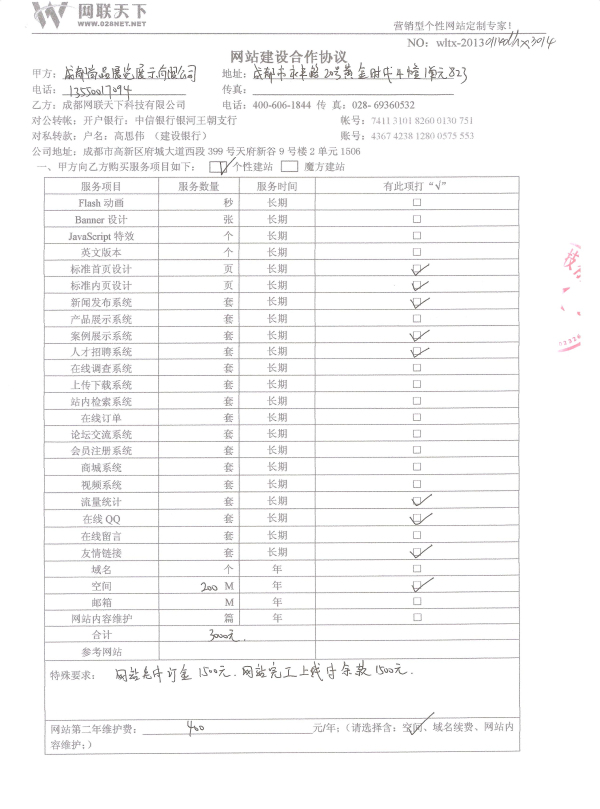 网联天下
WWW.028NET.NET
营销型个性网站定制专家！
NO：wltx-2013
网站建设合作协议
甲方：成都尚品展览展示有限公司 地址：成都市永丰路20号黄金时代4幢1单元823
电话：13550017094 传真：
乙方：成都网联天下科技有限公司 电话：400-606-1844 传 真：028- 69360532
对公转帐：开户银行：中信银行银河王朝支行 帐号：7411 3101 8260 0130 751
对私转款：户名：高思伟 （建设银行） 账号：4367 4238 1280 0575 553
公司地址：成都市高新区府城大道西段 399 号天府新谷 9 号楼 2 单元 1506
一、甲方向乙方购买服务项目如下：☑个性建站 □ 魔方建站
服务项目 服务数量 服务时间 有此项打“√”
Flash 动画 秒 长期 □
Banner 设计 张 长期 □
JavaScript 特效 个 长期 □
英文版本 个 长期 □
标准首页设计 页 长期 ☑
标准内页设计 页 长期 ☑
新闻发布系统 套 长期 ☑
产品展示系统 套 长期 □
案例展示系统 套 长期 ☑
人才招聘系统 套 长期 ☑
在线调查系统 套 长期 □
上传下载系统 套 长期 □
站内检索系统 套 长期 □
在线订单 套 长期 □
论坛交流系统 套 长期 □
会员注册系统 套 长期 □
商城系统 套 长期 □
视频系统 套 长期 □
流量统计 套 长期 ☑
在线 QQ 套 长期 ☑
在线留言 套 长期 □
友情链接 套 长期 ☑
域名 个 年 □
空间 200 M 年 ☑
邮箱 M 年 □
网站内容维护 篇 年 □
合计 3000元
参考网站
特殊要求：网站先付订金1500元．网站完工上线付余款1500元．
网站第二年维护费：400元/年；（请选择含：空间、域名续费、网站内
容维护；）